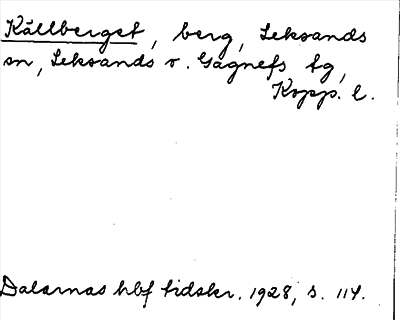 Källberget, berg, Leksands
sn, Leksands o. Gagnefs tg,
Kopp. l.
Dalarnas hbf tidskr. 1928, s. 114.